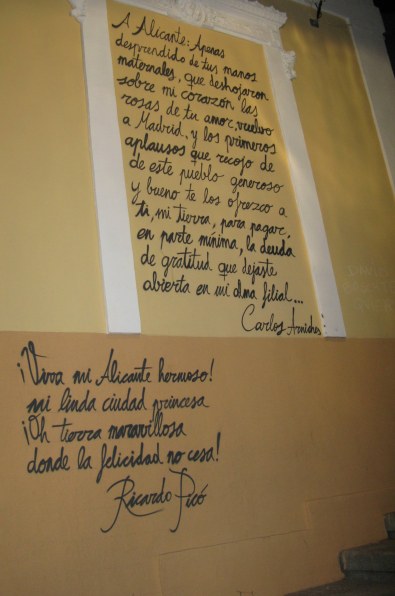 A Alicante: Apenas
desprendido de tus manos
maternales, que deshojaron
sobre mi corazón las
rosas de tu amor, vuelvo
a Madrid, y los primeros
aplausos que recojo de
de este pueblo generoso
y bueno te los ofrezco a
ti, mi tierra, para pagar,
en parte mínima, la deuda
de gratitud que dejaste
abierta en mi alma filial...
Carlos Arniches
¡Viva mi Alicante hermoso!
mi linda ciudad princesa
¡Oh tierra maravillosa
donde la felicidad no cesa!
Ricardo Picó